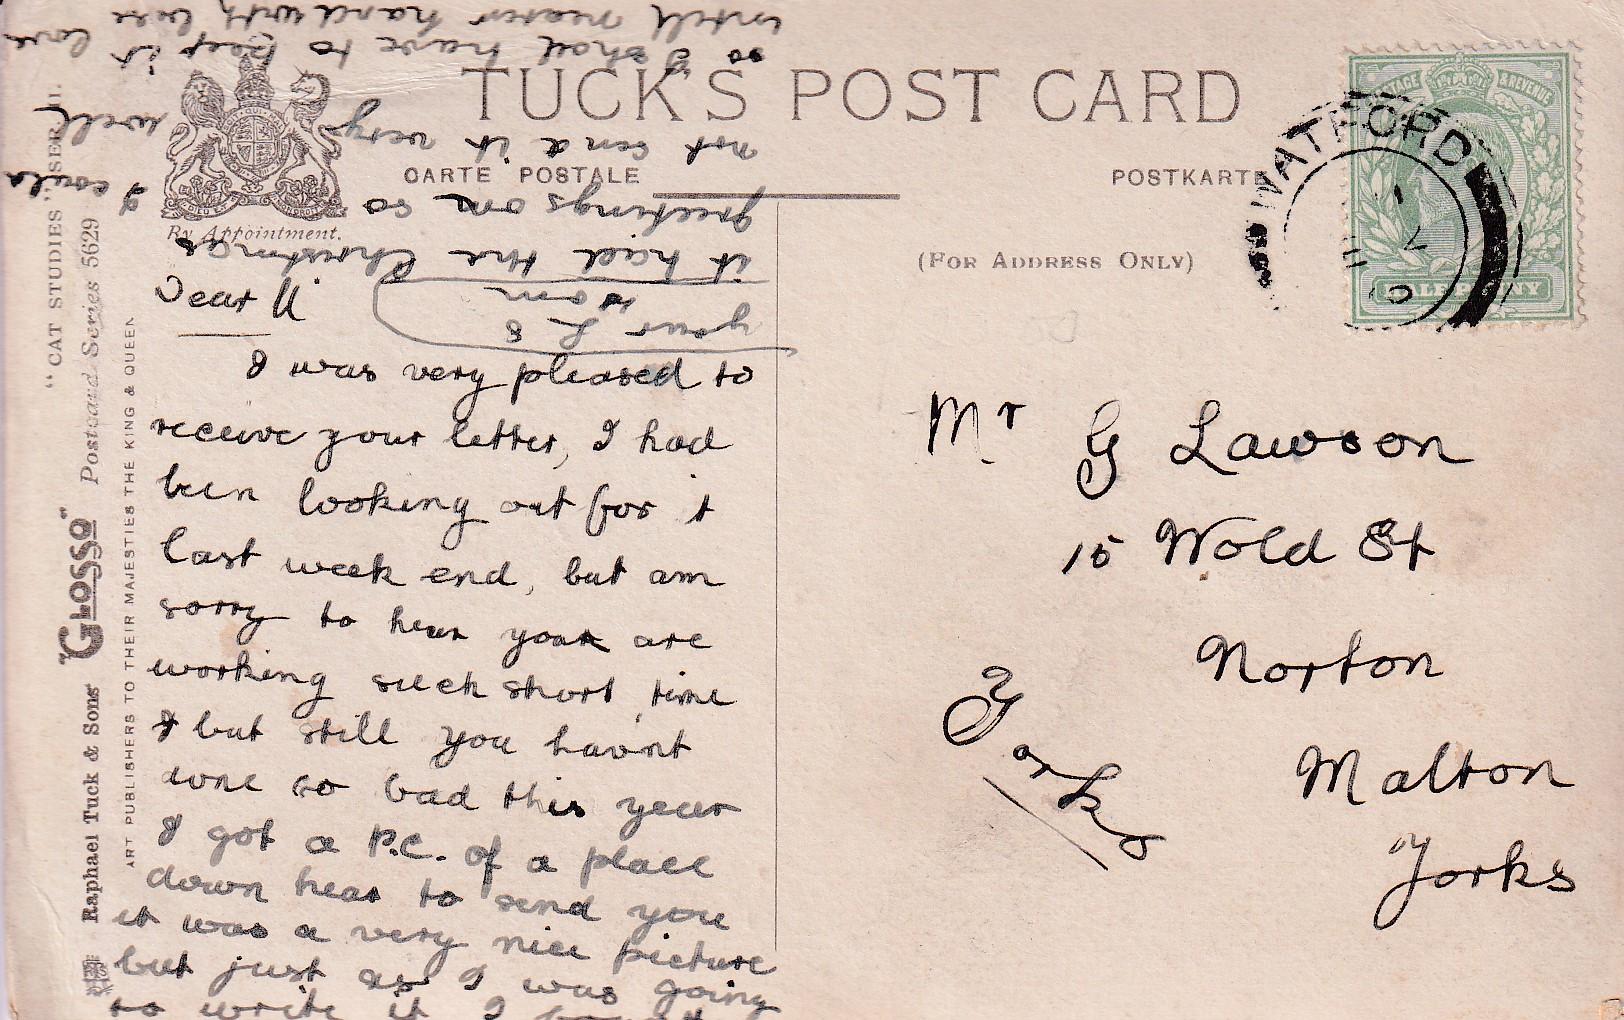 TUCK'S POST CARD
CARTE POSTALE
POSTKARTE
By Appointment.
(FOR ADDRESS ONLY)
POSTAGE & REVENUE
HALFPENNY
WATFORD
"CAT STUDIES" SER. II.
"GLOSSO" Postcard Series 5629
Raphael Tuck & Sons'
ART PUBLISHERS TO THEIR MAJESTIES THE KING & QUEEN
Dear
I was very pleased to
receive your letter, I had
been looking out for it
last week end, but am
sorry to hear your are
working such short time
I but still you havnt
done so bad this year
I got a P.C. of a place
down hear to send you
it was a very nice picture
but just as I was going
to write it I
it had the Christmas
greetings on so I could
not send it very well
so I shall have to keep it
intill nearer
your
Mr G Lawson
15 Wold St
Norton
Malton
Yorks
Yorks